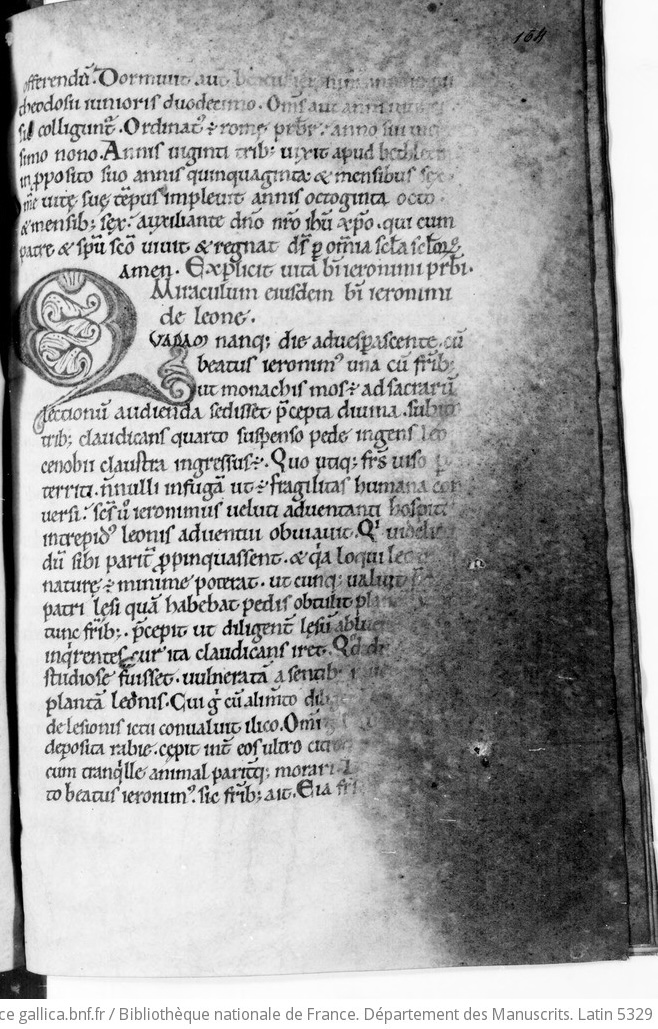 164
offerendū. Dormiuit aut̄
theodosii iunioris duodecimo. Om̄s aut̄ anni
sic colligunt᷑. Ordinat᷒ ÷ rome p̄rbr̄. anno sui
simo nono. Annis uiginti trib; uixit apud bethleem
in p̱posito suo annis quinquaginta & mensibus sex.
uite sue tēpus impleuit annis octoginta octo.
& mensib; sex. auxiliante dn̄o nr̄o ihū xp̄o. qui cum
patre & sp̄u sc̄o uiuit & regnat ds̄ p̱ om̄ia sc̄la
amen. Explicit uita bī ieronimi pr̄bi.
Miraculum eiusdem bī ieronimi
de leone.
QVADAM nanq; die aduesp̱ascente. cū
beatus ieronim᷒ una cū fr̄ib;
ut monachis mos ÷ ad sacrarū
lectionū audienda sedisset p̄cepta diuina. subito
trib; claudicans quarto suspenso pede ingens leo
cenobii claustra ingressus ÷. Quo utiq; fr̄s uiso
territi. n̄nulli in fugā ut ÷ fragilitas humana
uersi. sc̄s u᷒ ieronimus ueluti aduentanti hospiti
intrepid᷒ leonis aduentui obuiauit. Qͥ
dū sibi parit᷑ p̱pinquassent. & qͥa loqui
nature ÷ minime poterat. ut cunq; ualuit
patri lesi quā habebat pedis obtulit
tunc fr̄ib;. p̄cepit ut diligent᷑ lesū
inqͥrentes cur ita claudicans iret. Qd̄
studiose fuisset. uulneratā a sentib;
plantā leonis. Cui gͥ cū alim̄to
de lesionis ictu conualuit ilico.
deposita rabie. cepit int᷑ eos ultro
cum tranqͥlle animal paritq; morari.
to beatus ieronim᷒. sic fr̄ib; ait. Eia
ce gallica.bnf.fr / Bibliothèque nationale de France. Département des Manuscrits. Latin 5329